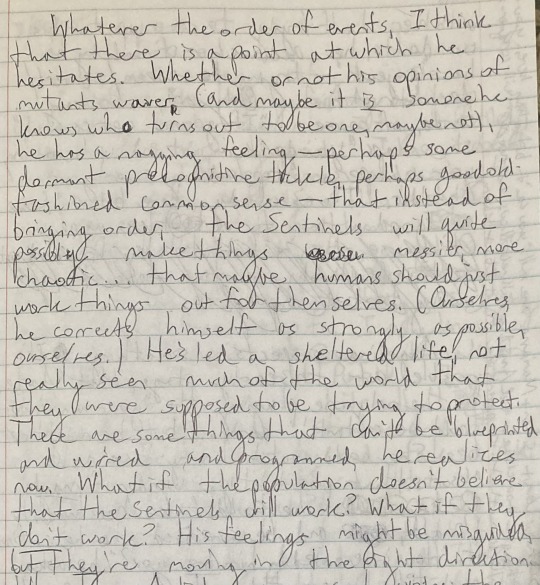 Whatever the order of events, I think
that there is a point at which he
hesitates. Whether or not his opinions of
mutants waver (and maybe it is someone he
knows who turns out to be one, maybe not),
he has a nagging feeling — perhaps some
dormant precognitive tickle, perhaps good old-
fashioned common sense — that instead of
bringing order, the Sentinels will quite
possibly make things messier, more
chaotic... that maybe humans should just
work things out for themselves. (Ourselves,
he corrects himself as strongly as possible,
ourselves.) He's led a sheltered life, not
really seen much of the world that
they were supposed to be trying to protect.
There are some things that can't be blueprinted
and wired and programmed, he realizes
now. What if the population doesn't believe
that the Sentinels will work? What if they
don't work? His feelings might be misguided,
but they're moving in the right direction